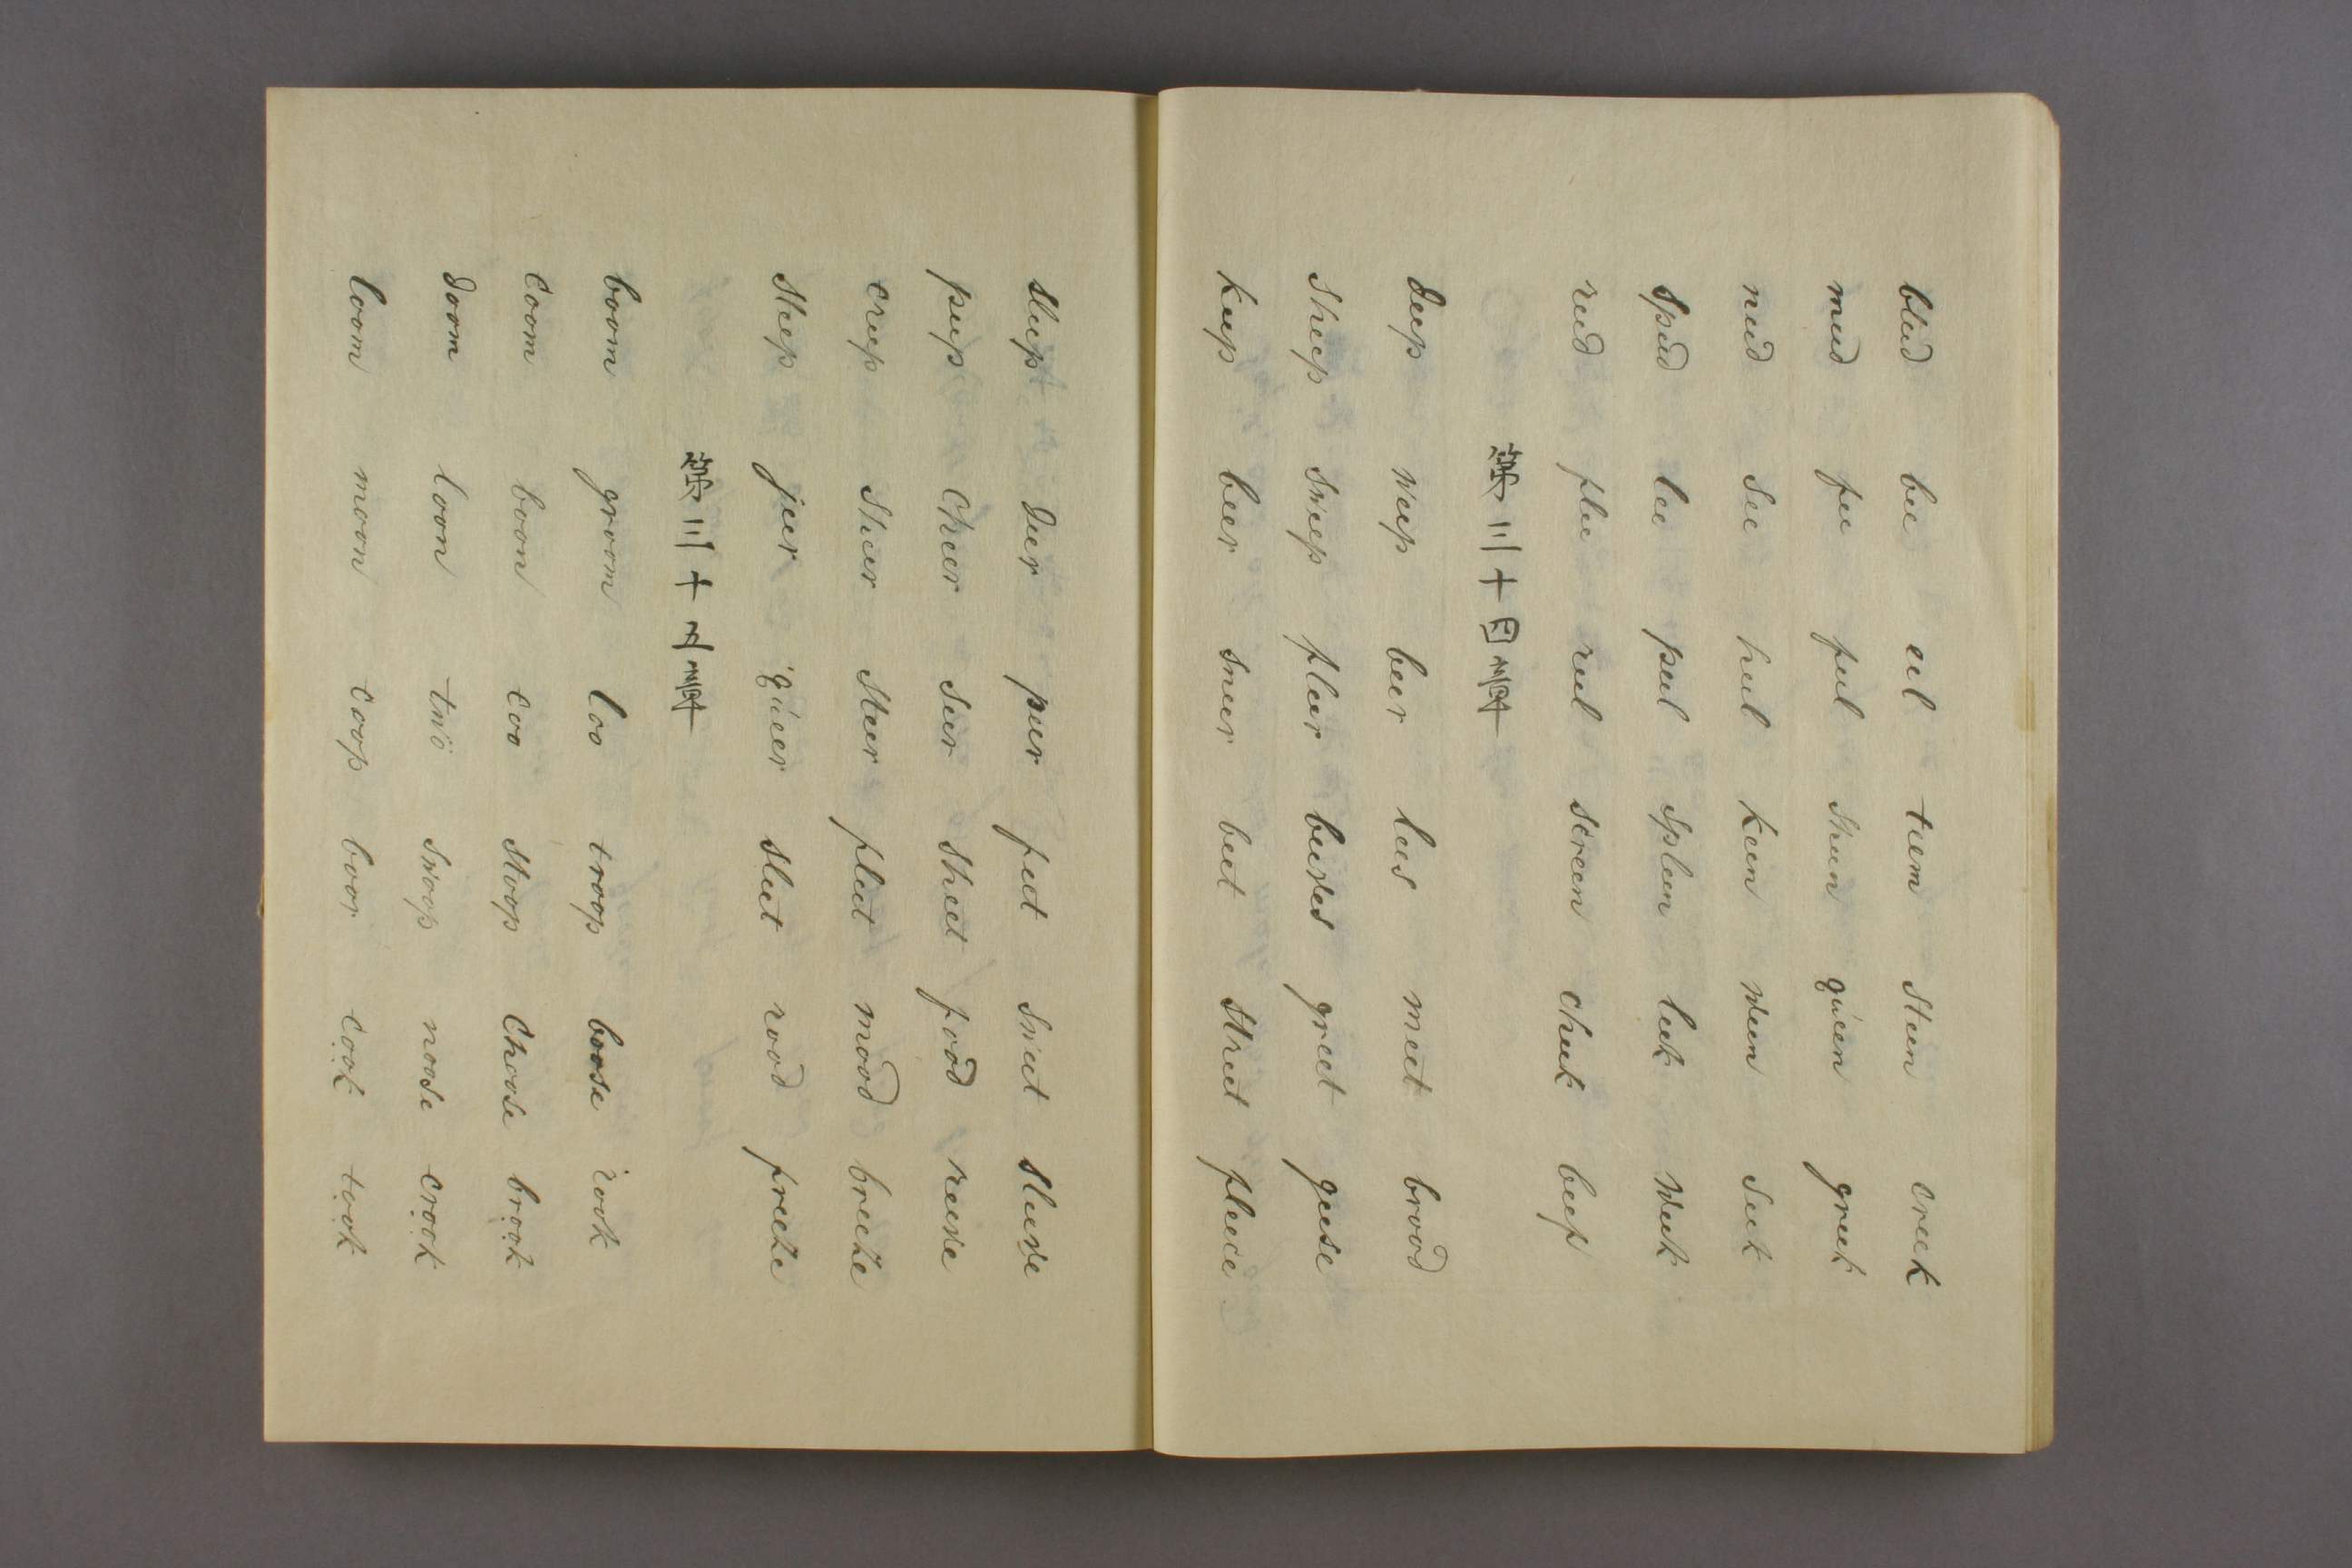 bleed bee eel teem steen creek
meed fee feel sheen queen greek
need see heel keen ween seek
speed lee peel spleen leek week
reed flee reel screen cheek beef
第三十四章
deep weep beer lees meet brood
sheep sweep fleer beeves greet geese
keep beer sneer beet street fleece
sleep deer peer feet sweet sleeve
peep cheer seer sheet food reeve
creep sheer steer fleet mood breeze
steep jeer queer sleet rood freeze
第三十五章
boom groom loo troop boose rook
coom boon coo stoop choose brook
doom loon two swoop noose crook
loom moon coop boor cook took